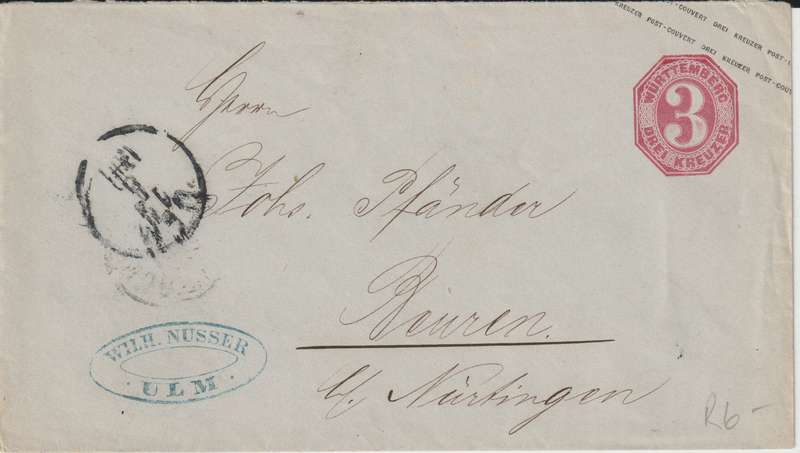 REUZER POST-COUVERT DREI KREUZER POST-
KREUZER POST-COUVERT DREI KREUZER POST-COUV
WÜRTTEMBERG
3
DREI KREUZER
Herrn
Johs. Pfänder
Beuren.
b/ Nürtingen
WILH. NUSSER
· ULM ·
R6-